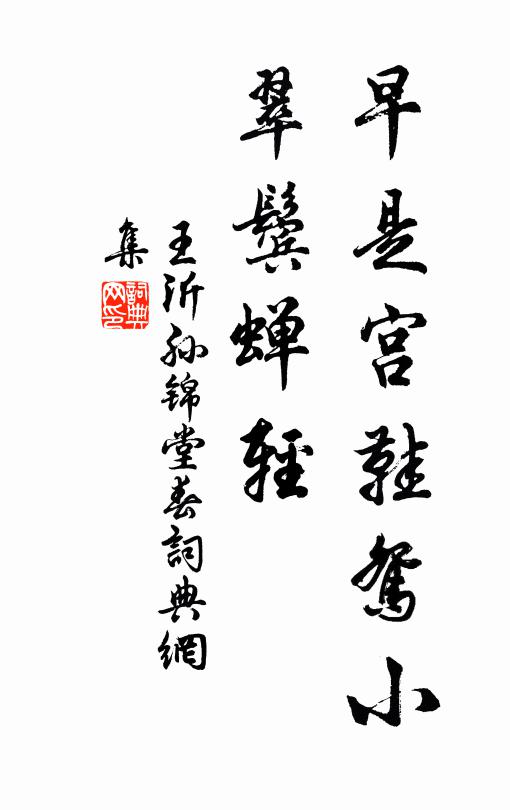 早是宫鞋鸳小
翠鬓蝉轻
王沂孙锦堂春詞典網
集
詞典
网印